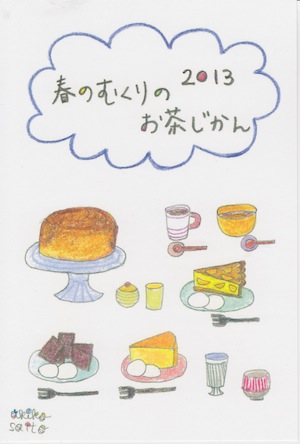 春のむくりの 2013
お茶じかん
akiko
saito